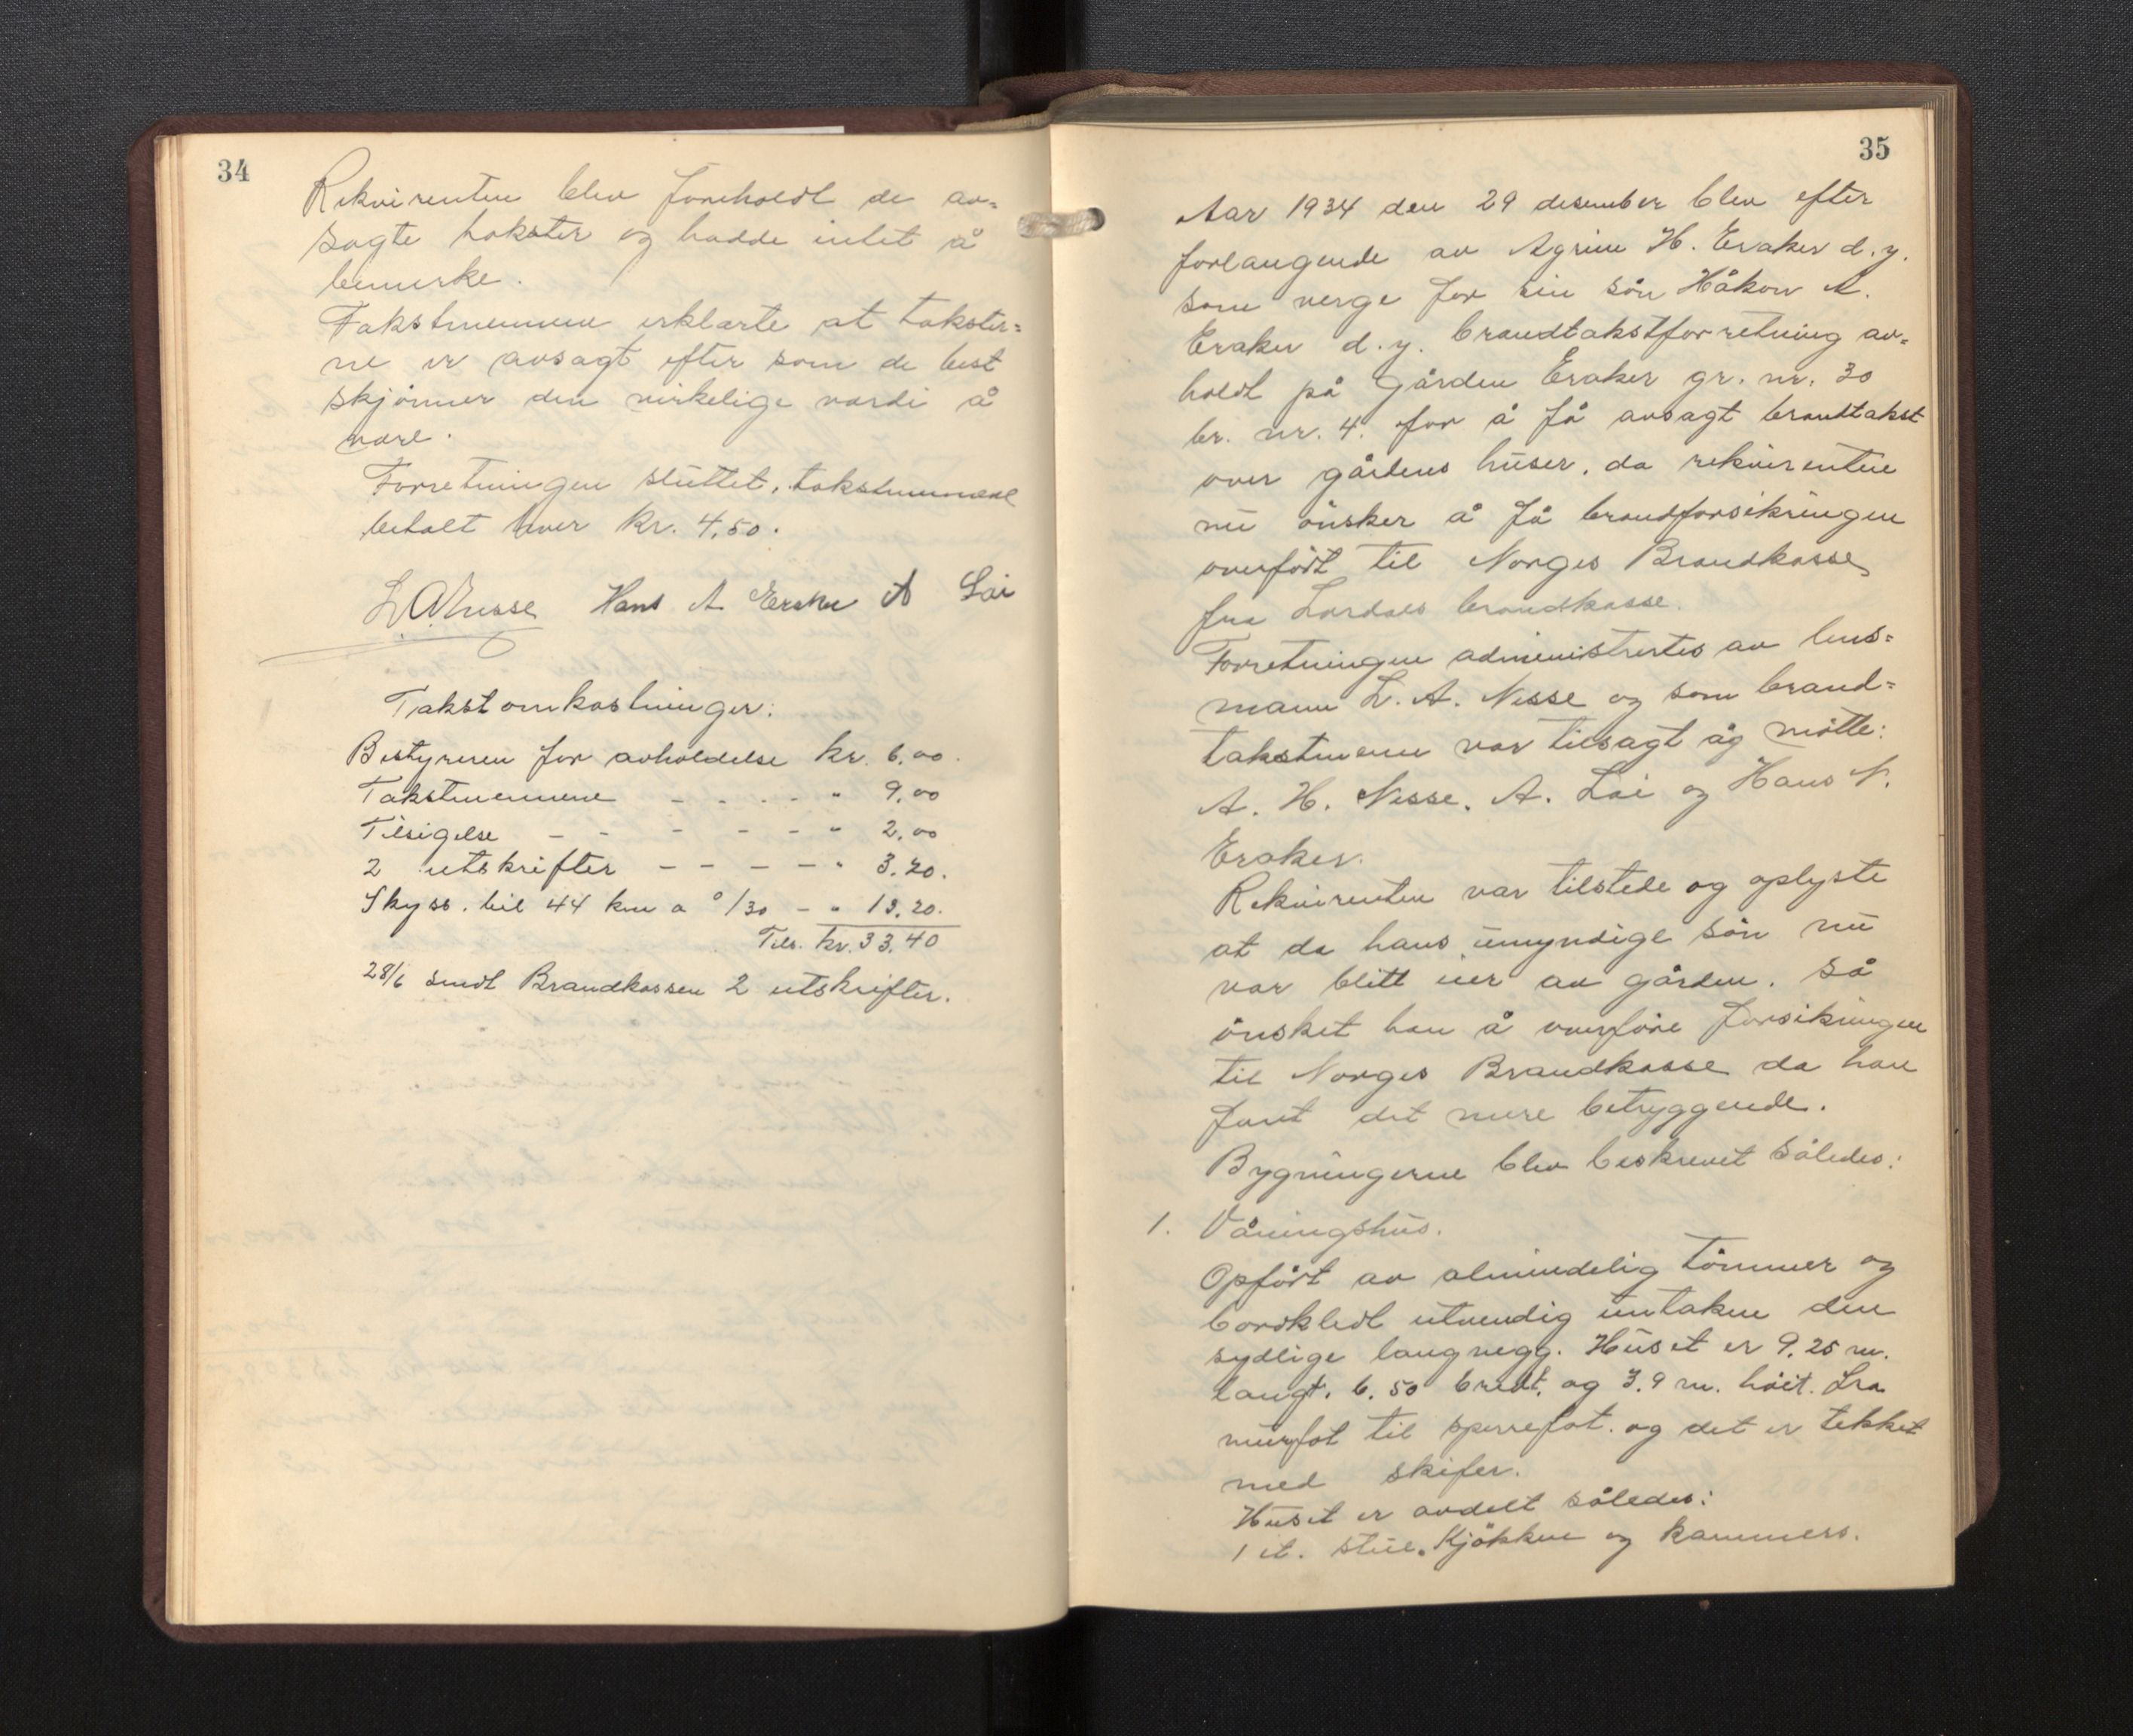 34
Rekvirenten blev foreholdt de av-
sagte takster og hadde intet å
bemerke.
Takstmennene erklærte at takster-
ne er avsagt efter som de best
skjønner den virkelige værdi å
være.
Forretningen sluttet, takstmennene
betalt hver kr. 4,50.
L A Nesse Hans A Eraker A Lai
Takstomkostninger:
Bestyreren for avholdelse kr. 6,00.
Takstmennene - - - - - " 9,00
Tilsigelse - - - - - - " 2,00
2 utskrifter - - - - - " 3.20.
Skyss. bil 44 km a 0/30 - " 13.20.
Tils. kr. 33.40
28/6 sendt Brandkassen 2 utskrifter.
35
Aar 1934 den 29 desember blev efter
forlangende av Agrim H. Eraker d.y.
som verge for sin søn Håkon A.
Eraker d.y. brandtakstforretning av-
holdt på gården Eraker gr. nr. 30
br. nr. 4. for å få avsagt brandtakst
over gårdens huser, da rekvirenten
nu ønsker å få brandforsikringen
overført til Norges Brandkasse
fra Lærdals brandkasse.
Forretningen administrertes av lens-
mann L. A. Nesse og som brand-
takstmenn var tilsagt og møtte:
A. H. Nesse, A. Lai og Hans N.
Eraker.
Rekvirenten var tilstede og oplyste
at da hans umyndige søn nu
var blitt eier av gården, så
ønsket han å overføre forsikringen
til Norges Brandkasse da han
fant det mere betryggende.
Bygningerne blev beskrevet således:
1. Våningshus.
Opført av almindelig tømmer og
bordkledt utvendig untaken den
sydlige langvegg. Huset er 9,25 m.
langt, 6,50 bredt, og 3,9 m. høit. fra
murfot til sperrefot. og det er tekket
med skifer.
Huset er avdelt således:
1 et. stue, kjøkken og kammers.